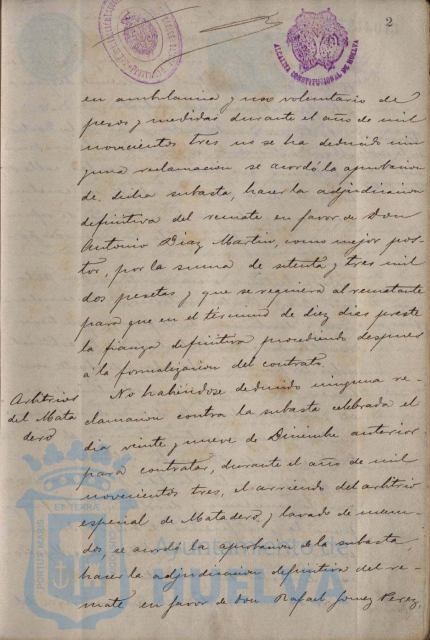 2
ALCALDIA CONSTITUCIONAL DE HUELVA
en ambulancia y uso voluntario de
pesos y medidas durante el año de mil
novecientos tres no se ha deducido nin
guna reclamacion se acordó la aprobacion
de dicha subasta, hacer la adjudicacion
definitiva del remate en favor de Don
Antonio Diaz Martin, como mejor pos-
tor, por la suma de setenta y tres mil
dos pesetas y que se requiera al rematante
para que en el término de diez dias preste
la fianza definitiva procediendo despues
á la formalizacion del contrato.
Arbitrios
del Mata
dero
No habiéndose deducido ninguna re-
clamacion contra la subasta celebrada el
dia veinte y nueve de Diciembre anterior
para contratar, durante el año de mil
novecientos tres, el arriendo del arbitrio
especial de Matadero y lavado de menu-
dos, se acordó la aprobacion de la subasta,
hacer la adjudicacion definitiva del re-
mate en favor de Don Rafael Gomez Perez,
Ayuntamiento de
HUELVA